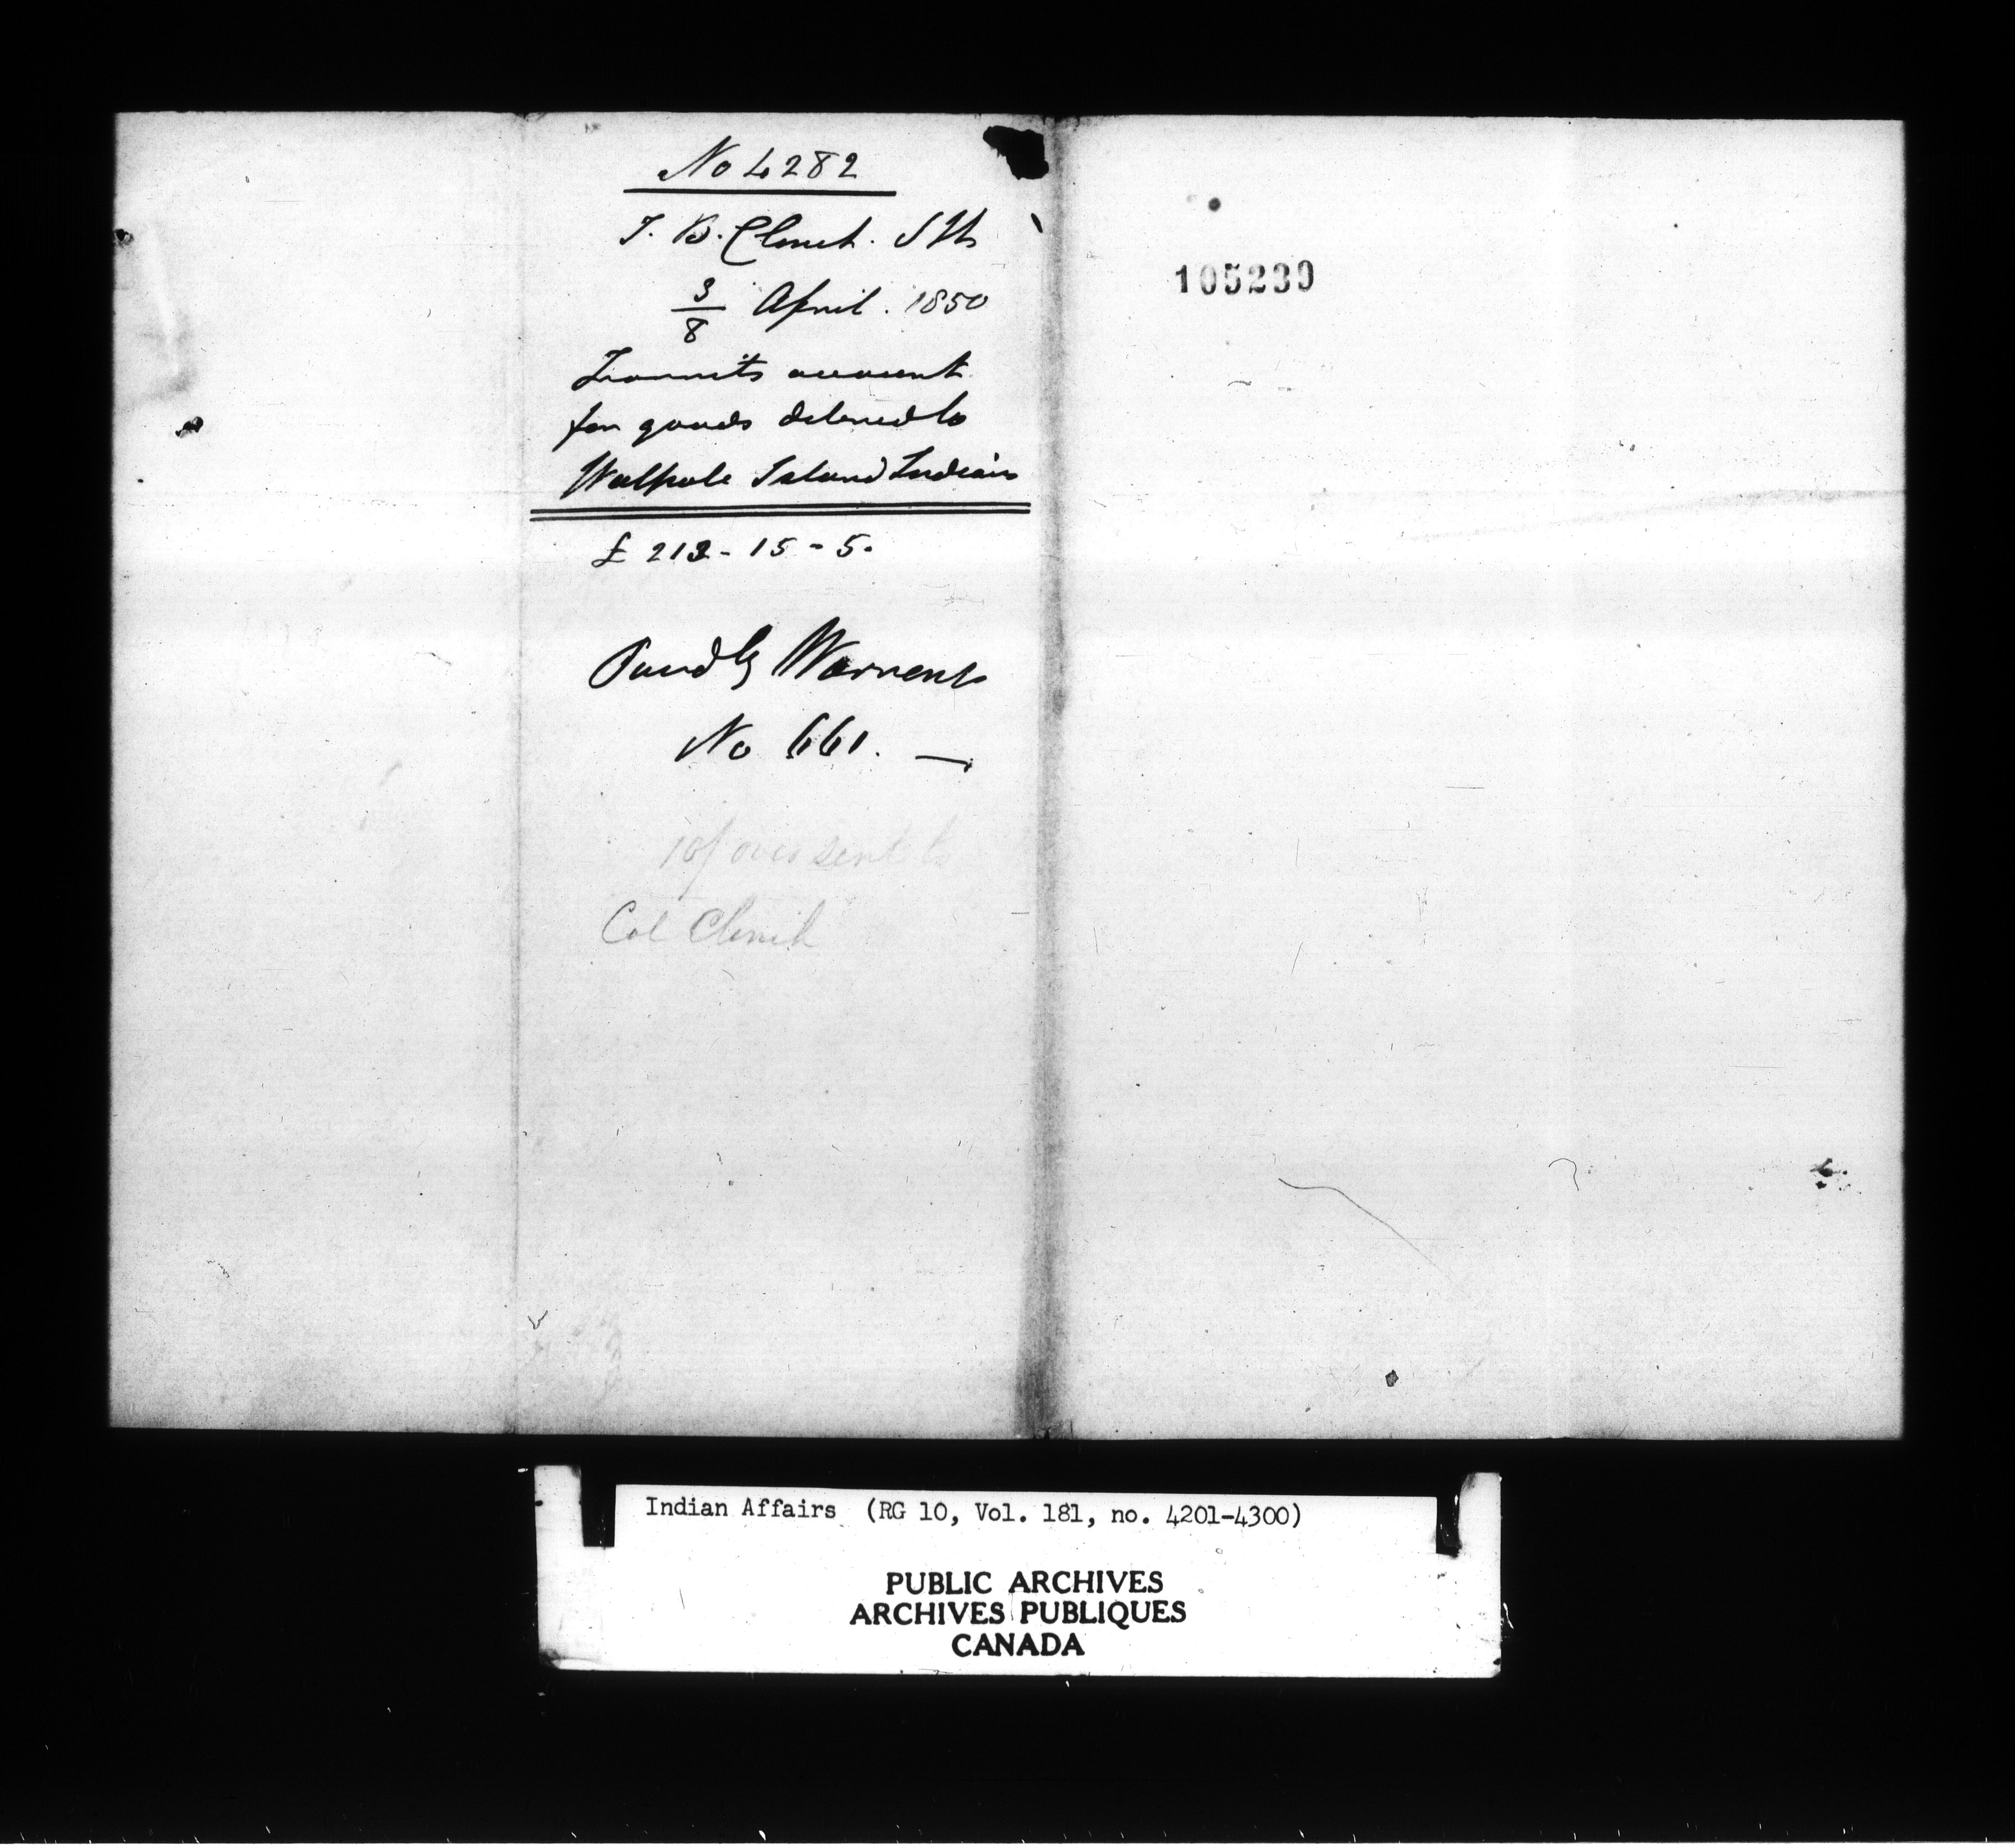 No 4282
J. B. Clench. SIA
3/8 April. 1850
Transmits account
for goods delivered to
Walpole Island Indians
£ 213 - 15 - 5.
Passed by Warrant
No 661.
10/ over sent to
Col Clench
105239
Indian Affairs (RG 10, Vol. 181, no. 4201-4300)
PUBLIC ARCHIVES
ARCHIVES PUBLIQUES
CANADA